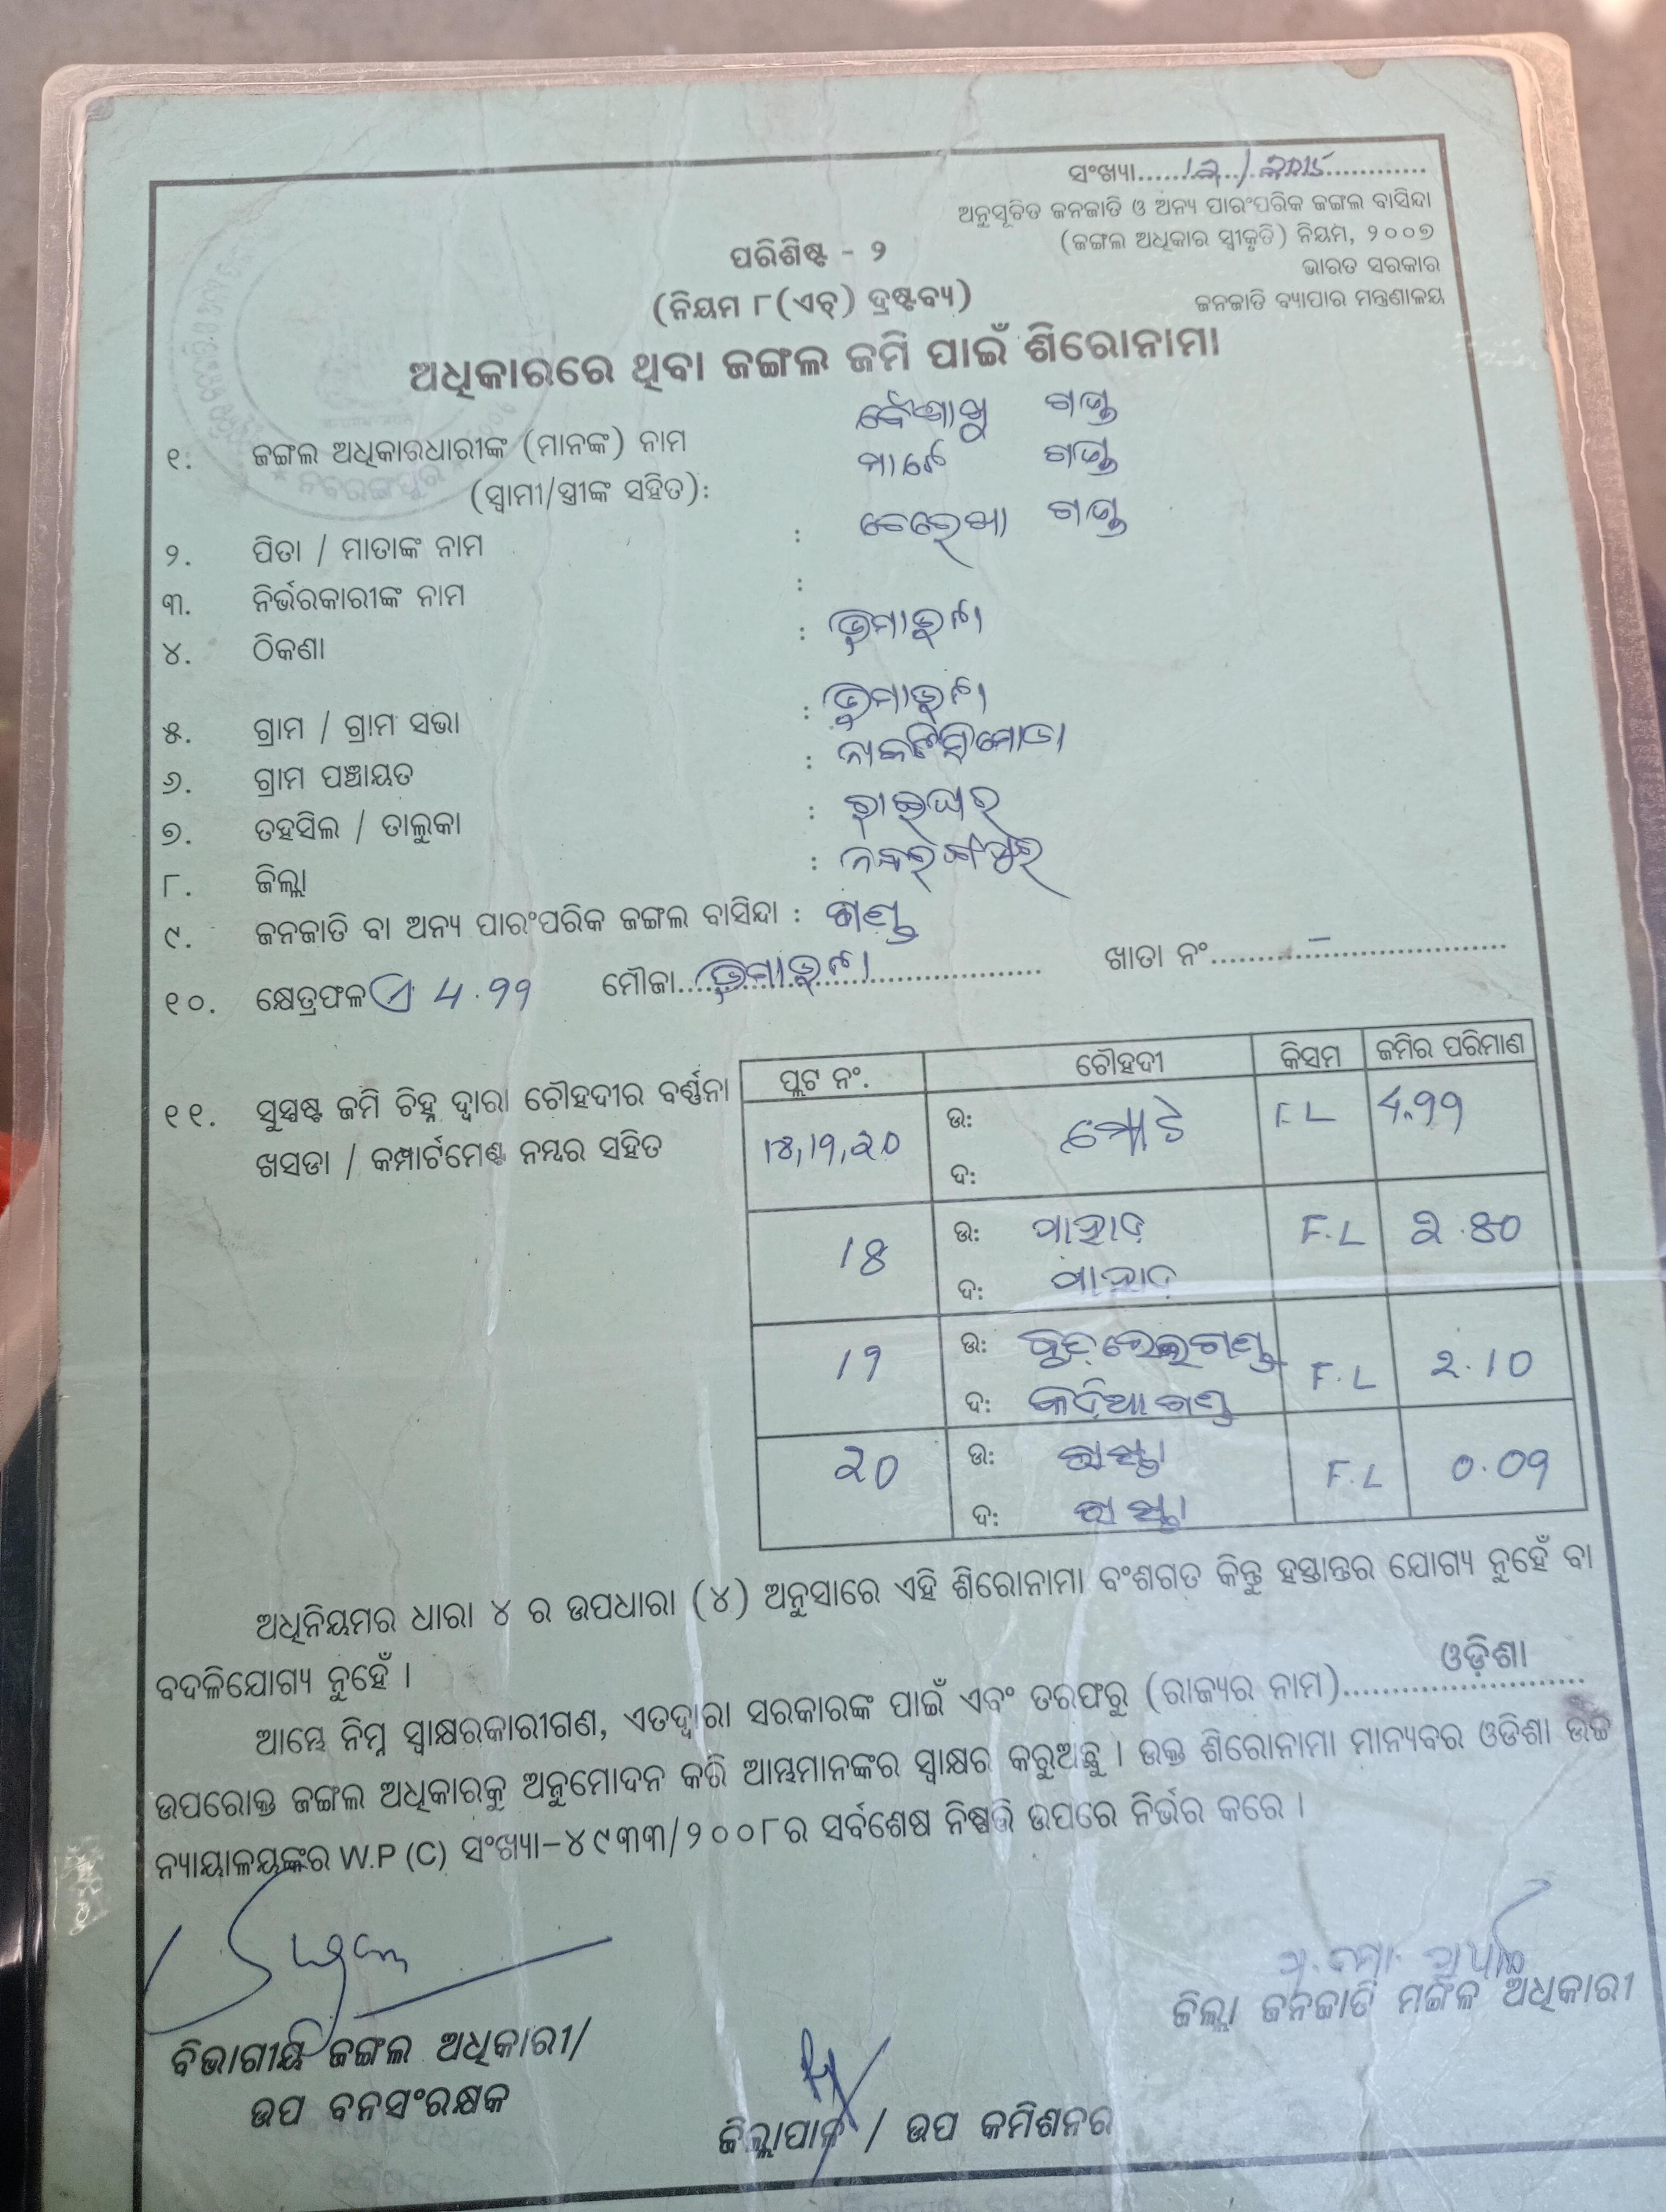 ସଂଖ୍ୟା......12./.2015............
ଅନୁସୂଚିତ ଜନଜାତି ଓ ଅନ୍ୟ ପାରଂପରିକ ଜଙ୍ଗଲ ବାସିନ୍ଦା
(ଜଙ୍ଗଲ ଅଧିକାର ସ୍ୱୀକୃତି) ନିୟମ, ୨୦୦୭
ଭାରତ ସରକାର
ଜନଜାତି ବ୍ୟାପାର ମନ୍ତ୍ରଣାଳୟ
ପରିଶିଷ୍ଟ - ୨
(ନିୟମ ୮(ଏଚ୍) ଦ୍ରଷ୍ଟବ୍ୟ)
ଅଧିକାରରେ ଥିବା ଜଙ୍ଗଲ ଜମି ପାଇଁ ଶିରୋନାମା
୧. ଜଙ୍ଗଲ ଅଧିକାରଧାରୀଙ୍କ (ମାନଙ୍କ) ନାମ ବୈଶାଖୁ ଗଣ୍ଡ
(ସ୍ୱାମୀ/ସ୍ତ୍ରୀଙ୍କ ସହିତ): ଗଣ୍ଡ
୨. ପିତା / ମାତାଙ୍କ ନାମ : ଗଣ୍ଡ
୩. ନିର୍ଭରକାରୀଙ୍କ ନାମ :
୪. ଠିକଣା :
୫. ଗ୍ରାମ / ଗ୍ରାମ ସଭା :
୬. ଗ୍ରାମ ପଞ୍ଚାୟତ :
୭. ତହସିଲ / ତାଲୁକା : ରାଇଘର
୮. ଜିଲ୍ଲା : ନବରଙ୍ଗପୁର
୯. ଜନଜାତି ବା ଅନ୍ୟ ପାରଂପରିକ ଜଙ୍ଗଲ ବାସିନ୍ଦା : ଗଣ୍ଡ
୧୦. କ୍ଷେତ୍ରଫଳ ଏ 4.99 ମୌଜା.................... ଖାତା ନଂ..........–..............
୧୧. ସୁସ୍ପଷ୍ଟ ଜମି ଚିହ୍ନ ଦ୍ୱାରା ଚୌହଦୀର ବର୍ଣ୍ଣନା
ଖସଡା / କମ୍ପାର୍ଟମେଣ୍ଟ ନମ୍ବର ସହିତ
ପ୍ଲଟ ନଂ. ଚୌହଦୀ କିସମ ଜମିର ପରିମାଣ
18,19,20 ଉ: ମୋଟ F.L 4.99
ଦ:
18 ଉ: ପାହାଡ଼ F.L 2.80
ଦ: ପାହାଡ଼
19 ଉ: F.L 2.10
ଦ: ଗଣ୍ଡ
20 ଉ: ରାସ୍ତା F.L 0.09
ଦ: ରାସ୍ତା
ଅଧିନିୟମର ଧାରା ୪ ର ଉପଧାରା (୪) ଅନୁସାରେ ଏହି ଶିରୋନାମା ବଂଶଗତ କିନ୍ତୁ ହସ୍ତାନ୍ତର ଯୋଗ୍ୟ ନୁହେଁ ବା
ବଦଳିଯୋଗ୍ୟ ନୁହେଁ ।
ଆମ୍ଭେ ନିମ୍ନ ସ୍ୱାକ୍ଷରକାରୀଗଣ, ଏତଦ୍ୱାରା ସରକାରଙ୍କ ପାଇଁ ଏବଂ ତରଫରୁ (ରାଜ୍ୟର ନାମ)........ଓଡ଼ିଶା........
ଉପରୋକ୍ତ ଜଙ୍ଗଲ ଅଧିକାରକୁ ଅନୁମୋଦନ କରି ଆମ୍ଭମାନଙ୍କର ସ୍ୱାକ୍ଷର କରୁଅଛୁ । ଉକ୍ତ ଶିରୋନାମା ମାନ୍ୟବର ଓଡିଶା ଉଚ୍ଚ
ନ୍ୟାୟାଳୟଙ୍କର W.P (C) ସଂଖ୍ୟା-୪୯୩୩/୨୦୦୮ର ସର୍ବଶେଷ ନିଷ୍ପତ୍ତି ଉପରେ ନିର୍ଭର କରେ ।
ଜିଲ୍ଲା ଜନଜାତି ମଙ୍ଗଳ ଅଧିକାରୀ
ବିଭାଗୀୟ ଜଙ୍ଗଲ ଅଧିକାରୀ/
ଉପ ବନସଂରକ୍ଷକ
ଜିଲ୍ଲାପାଳ / ଉପ କମିଶନର